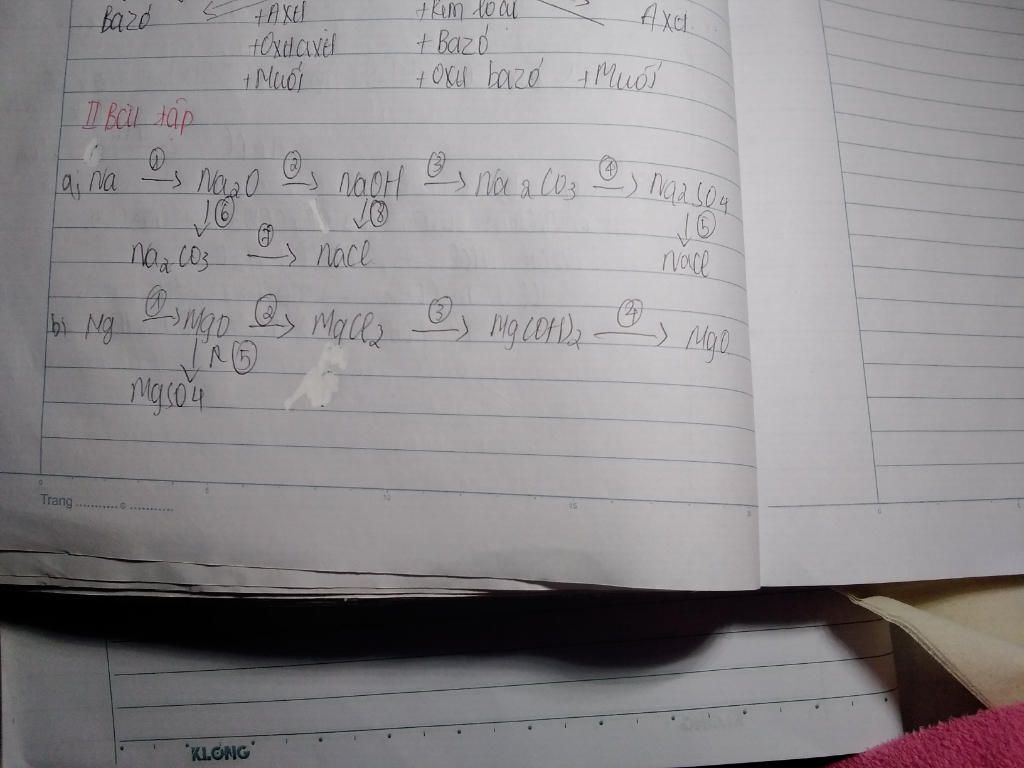 Bazơ +Axit +Kim loại Axit
+Oxitaxit +Bazơ
+Muối +Oxit bazơ +Muối
II Bài tập
① ② ③ ④
a, Na → Na2O → NaOH → Na2CO3 → Na2SO4
↓⑥ ↓⑧ ↓⑤
⑦
Na2CO3 → NaCl NaCl
① ② ③ ④
b, Mg → MgO → MgCl2 → Mg(OH)2 → MgO
↓ ⑤
MgSO4
Trang
0 5 10 15
KLONG